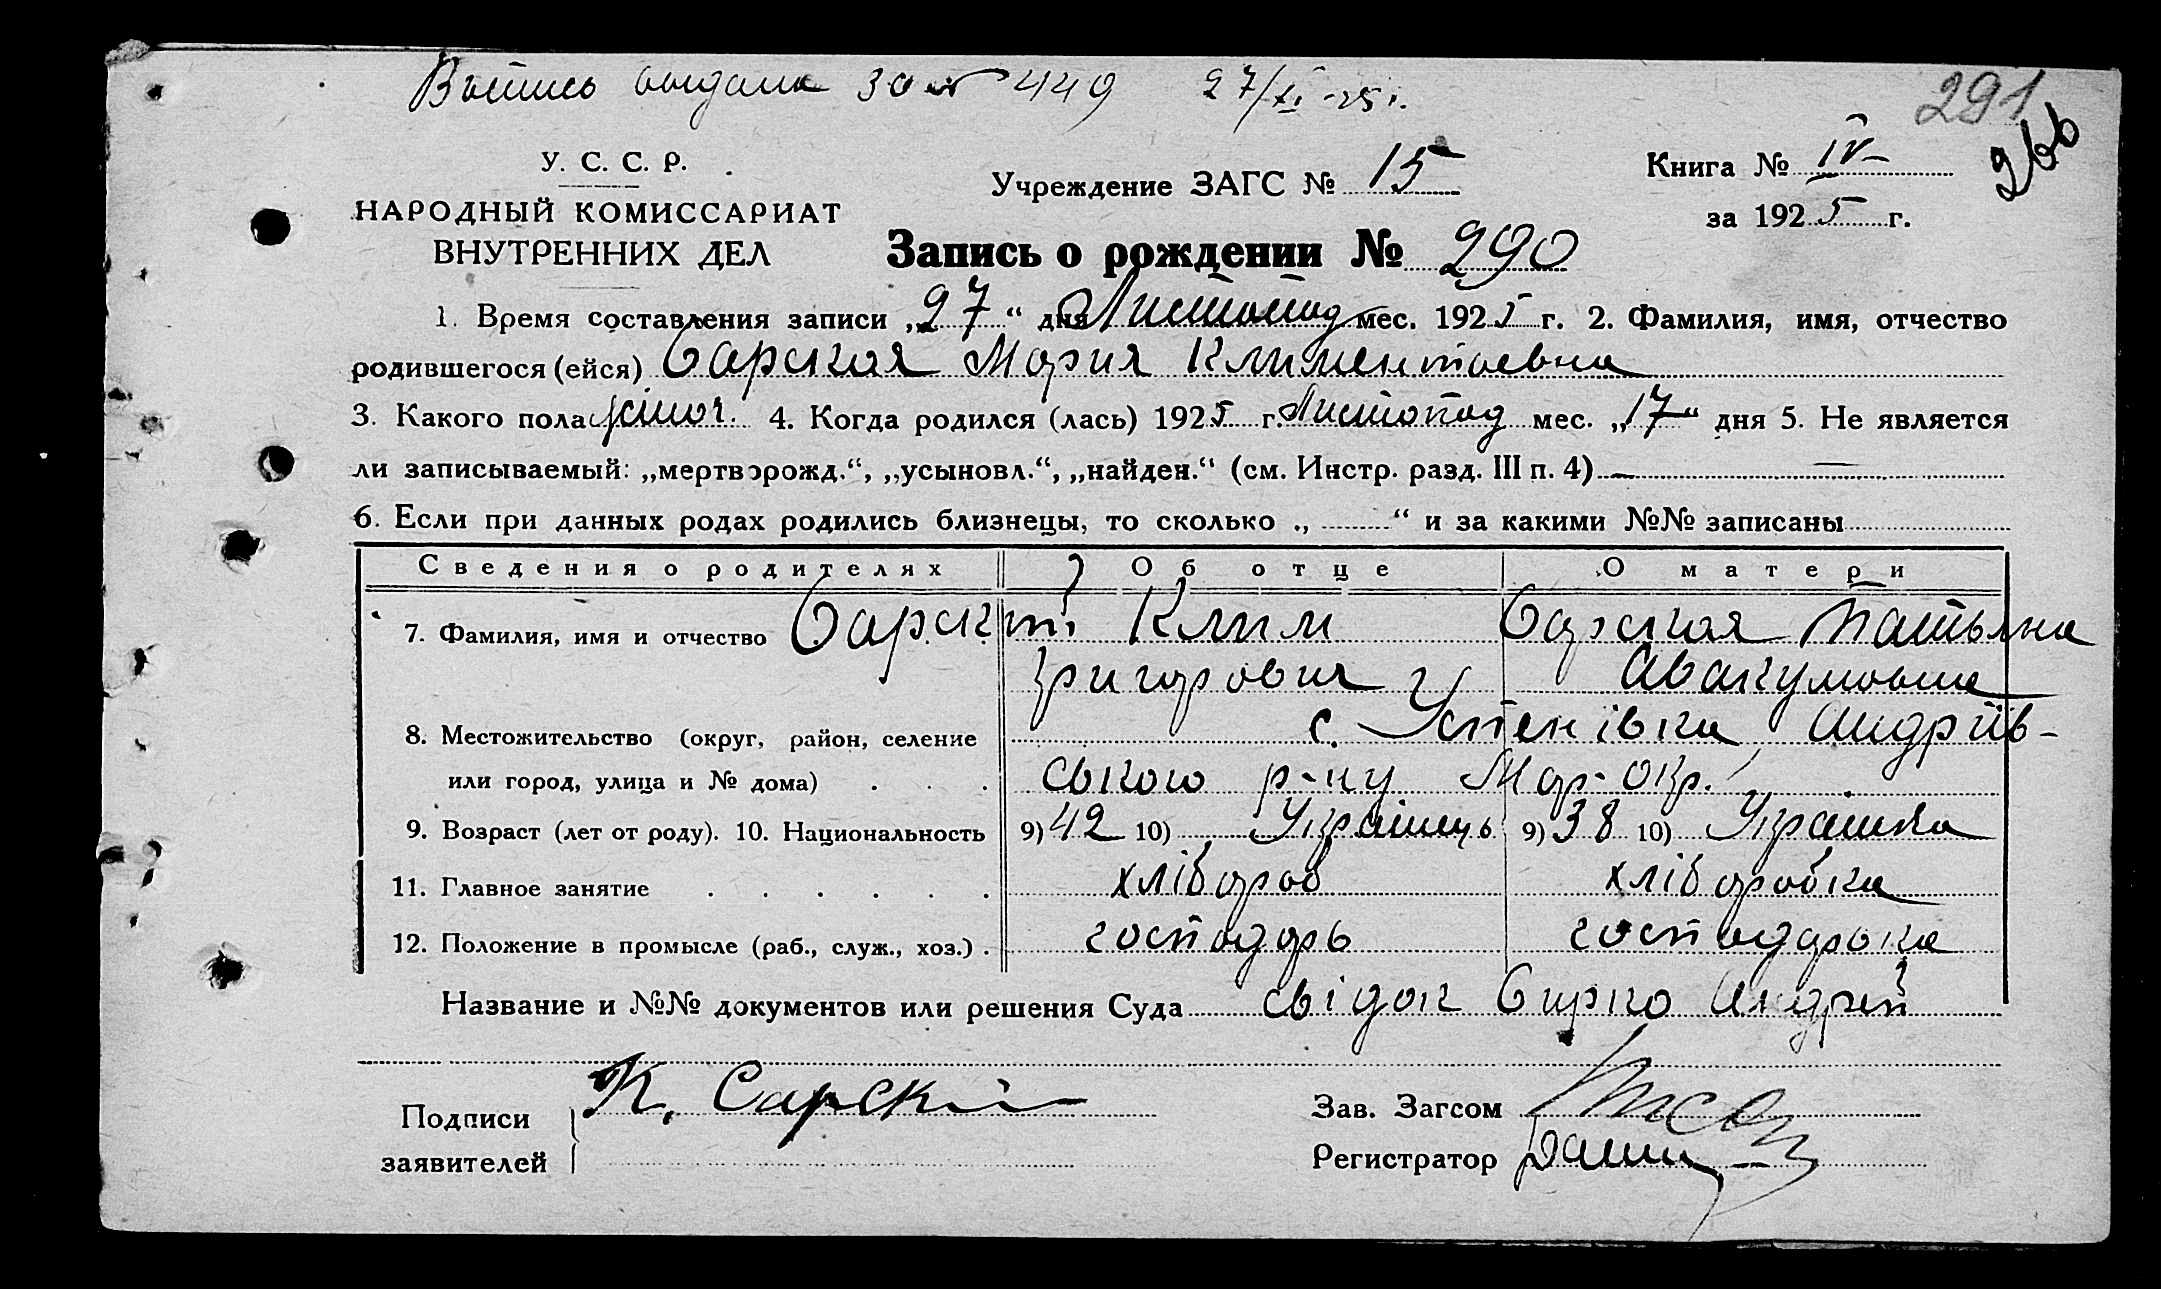 Выпись выдана за № 449 27/XI-25 г.
291
266
У. С. С. Р.
НАРОДНЫЙ КОМИССАРИАТ
ВНУТРЕННИХ ДЕЛ
Учреждение ЗАГС № 15
Книга № IV
за 1925 г.
Запись о рождении № 290
1. Время составления записи „27“ дня Листопад мес. 1925 г. 2. Фамилия, имя, отчество
родившегося (ейся) Сарская Мария Климентьевна
3. Какого пола жіноч. 4. Когда родился (лась) 1925 г. Листопад мес. „17“ дня 5. Не является
ли записываемый: „мертворожд.“, „усыновл.“, „найден.“ (см. Инстр. разд. III п. 4) —
6. Если при данных родах родились близнецы, то сколько „ “ и за какими №№ записаны
Сведения о родителях Об отце О матери
7. Фамилия, имя и отчество Сарский Клим Сарская Татьяна
Григорович Авакумовна
8. Местожительство (округ, район, селение с. Успенівка Андріїв-
или город, улица и № дома) ського р-ну Мар. окр.
9. Возраст (лет от роду). 10. Национальность 9) 42 10) Українець 9) 38 10) Українка
11. Главное занятие хлібороб хліборобка
12. Положение в промысле (раб., служ., хоз.) господарь господарька
Название и №№ документов или решения Суда свідок Сирко Андрей
Подписи
заявителей
К. Сарский
Зав. Загсом
Регистратор